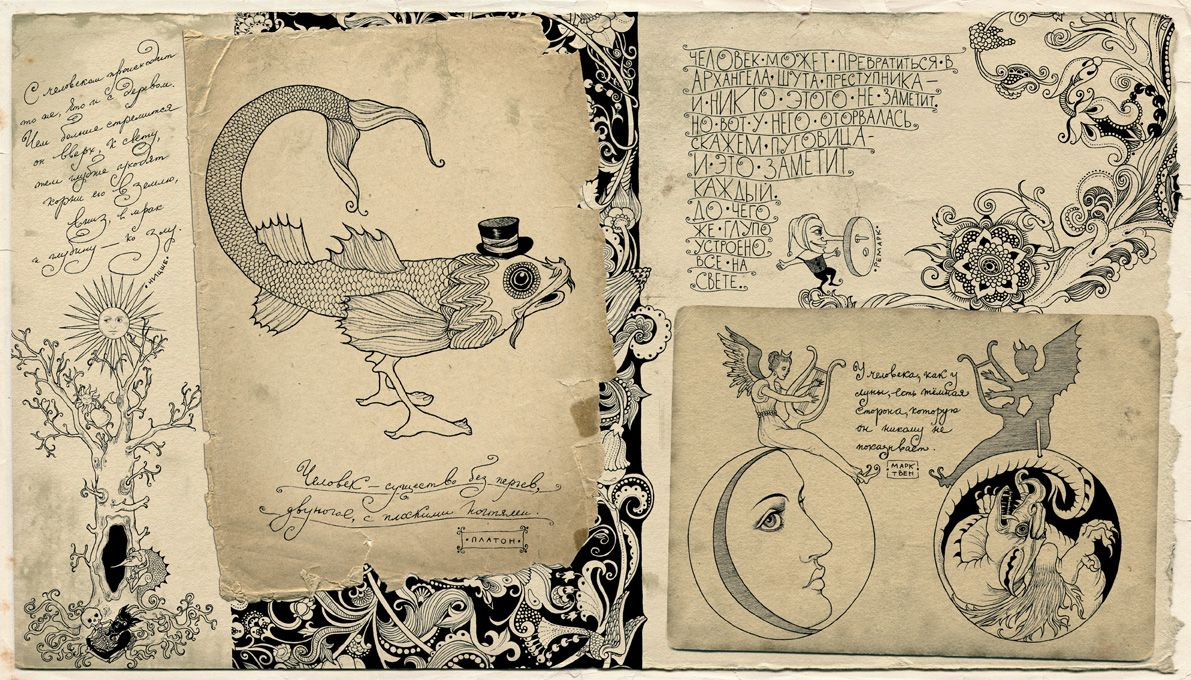 С человеком происходит
то же, что и с деревом.
Чем больше стремится
он вверх, к свету,
тем глубже уходят
корни его в землю,
вниз, в мрак
и глубину — ко злу.
·НИЦШЕ·
Человек – существо без перьев,
двуногое, с плоскими ногтями.
·ПЛАТОН·
ЧЕЛОВЕК·МОЖЕТ·ПРЕВРАТИТЬСЯ·В
АРХАНГЕЛА·ШУТА·ПРЕСТУПНИКА –
И·НИКТО·ЭТОГО·НЕ·ЗАМЕТИТ.
НО·ВОТ·У·НЕГО·ОТОРВАЛАСЬ
СКАЖЕМ·ПУГОВИЦА –
И·ЭТО·ЗАМЕТИТ
КАЖДЫЙ.
ДО·ЧЕГО
ЖЕ·ГЛУПО
УСТРОЕНО
ВСЕ·НА
СВЕТЕ.
·РЕМАРК·
У человека, как у
луны, есть тёмная
сторона, которую
он никому не
показывает.
МАРК
ТВЕН